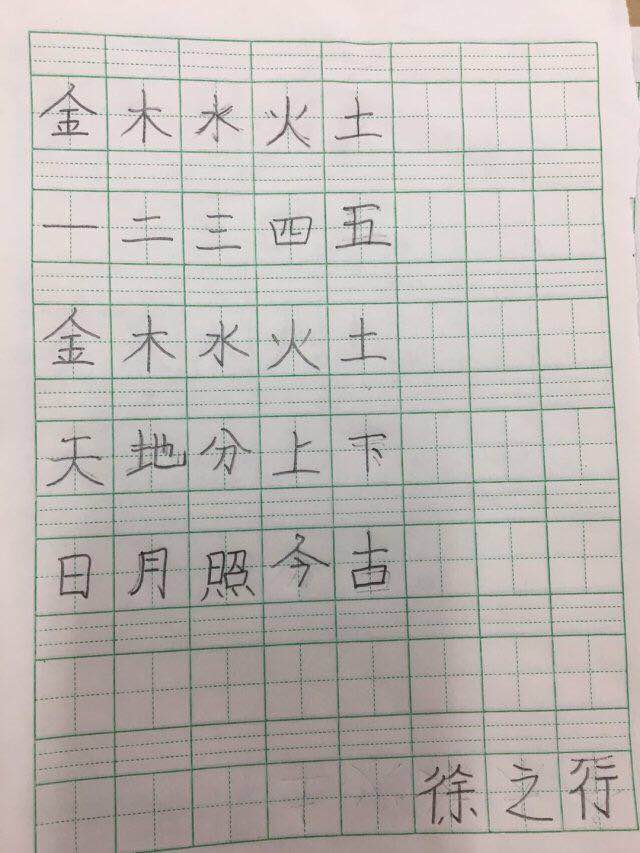 金木水火土
一二三四五
金木水火土
天地分上下
日月照今古
徐之行